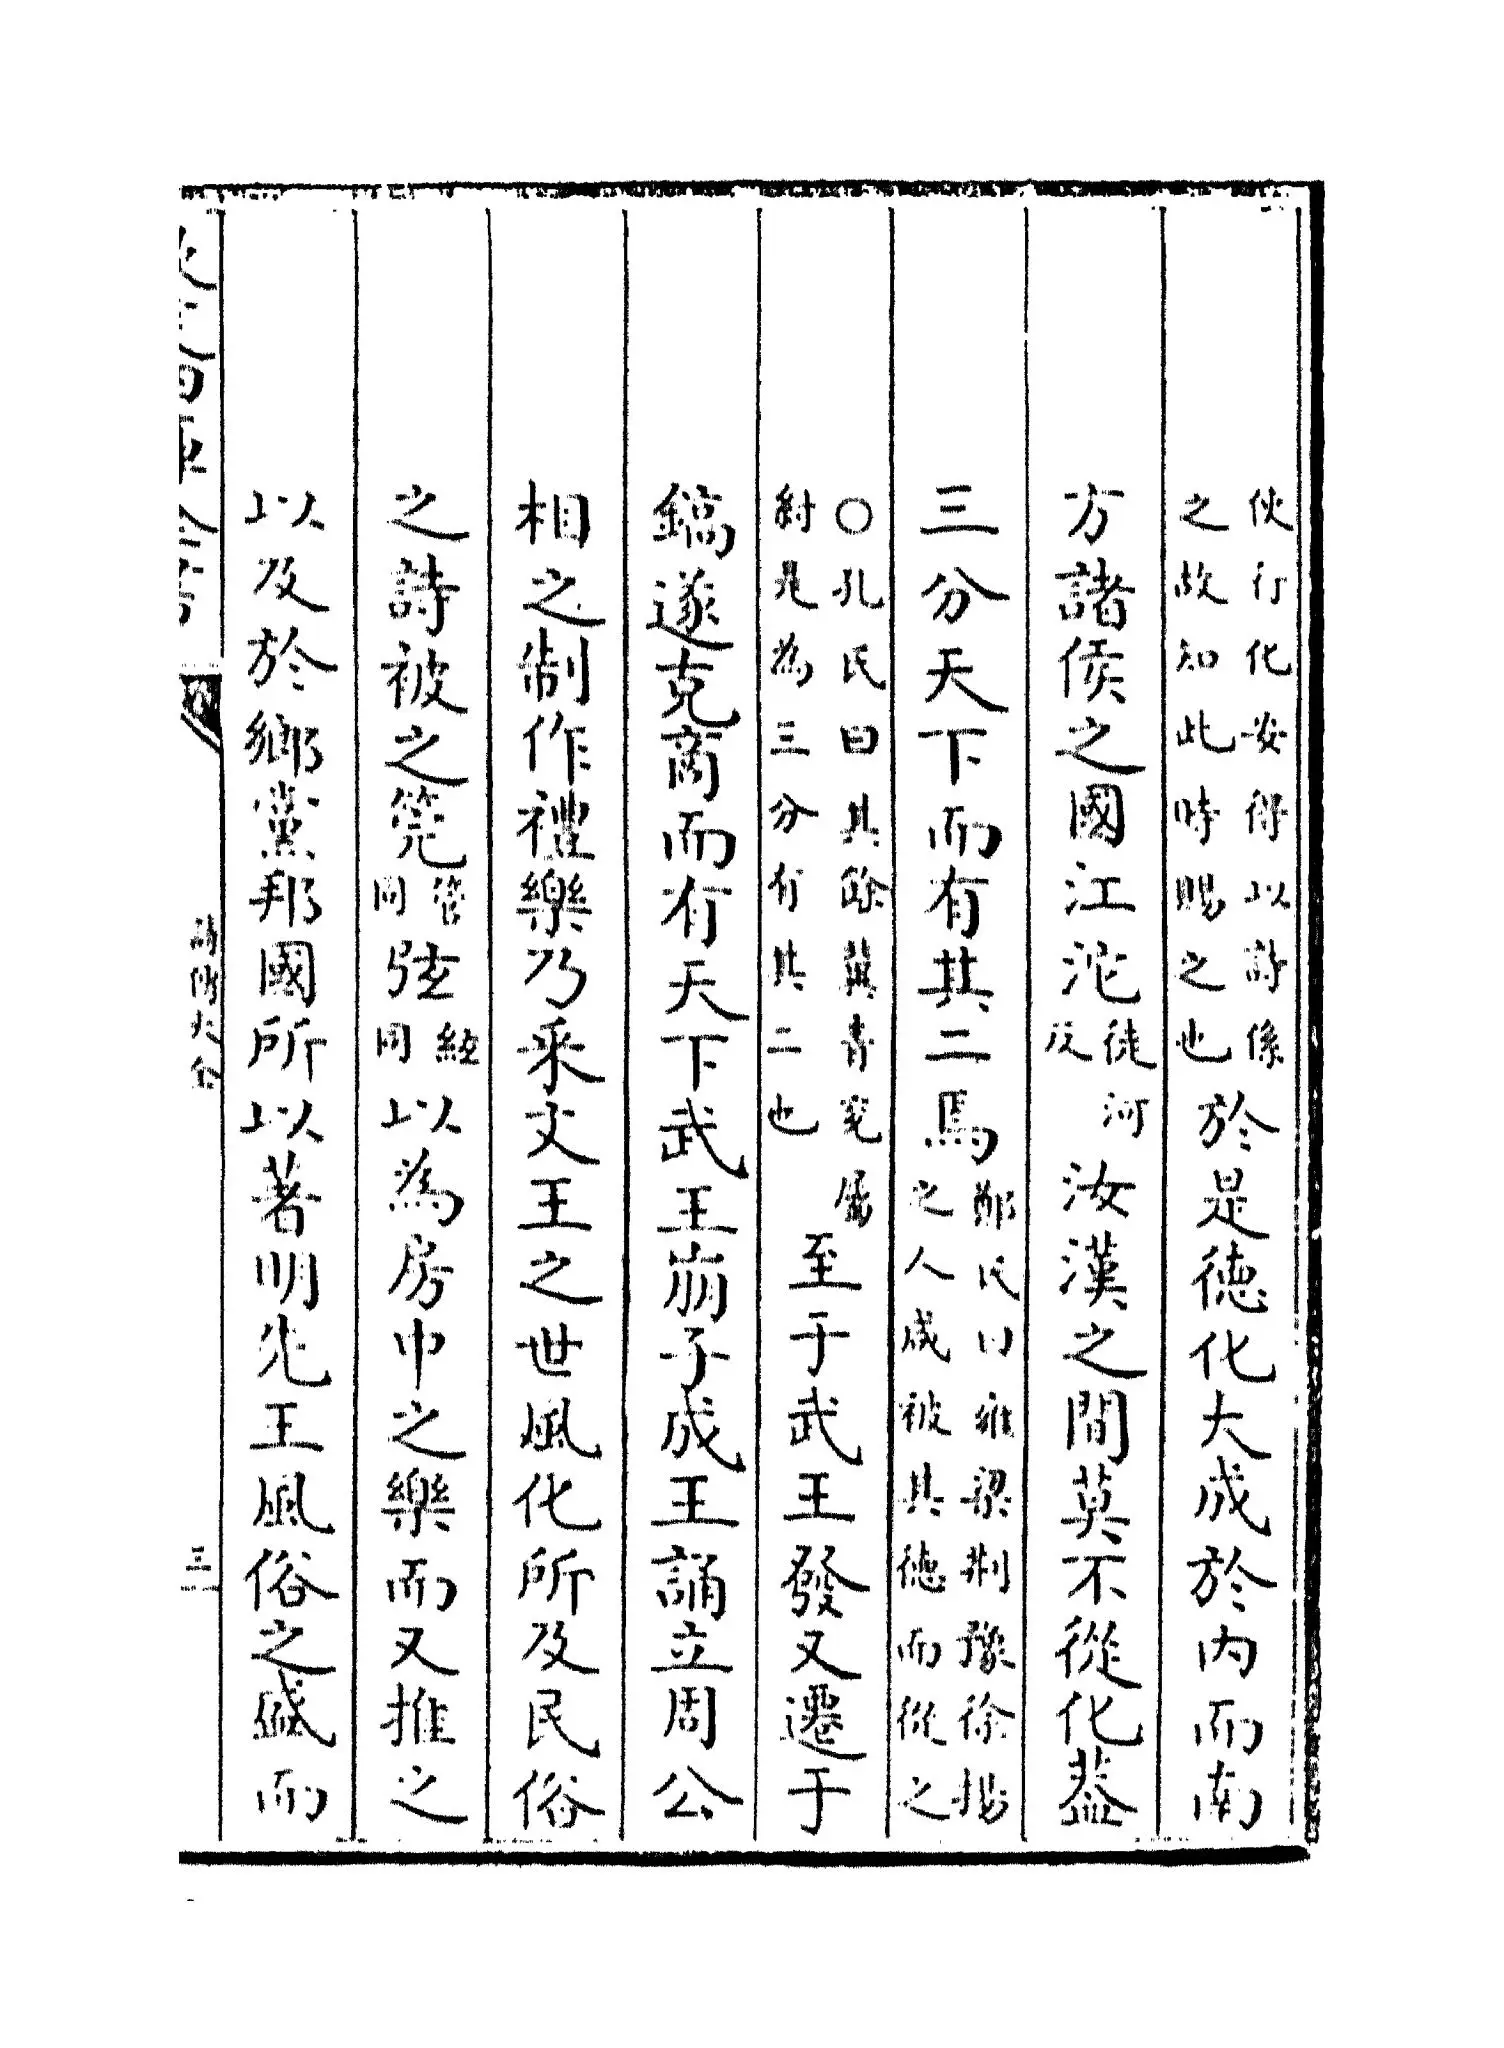 伙行化安得以詩係
之故知此時賜之也
於是德化大成於内而南
方諸侯之國江沱
徒河
反
汝漢之間莫不從化葢
三分天下而有其二焉
鄭氏曰雍梁荆豫徐揚
之人咸被其德而從之
○孔氏曰其餘冀青兖屬
紂是為三分有其二也
至于武王發又遷于
鎬遂克商而有天下武王崩子成王誦立周公
相之制作禮樂乃采文王之世風化所及民俗
之詩被之筦
管
同
弦
絃
同
以為房中之樂而又推之
以及於鄉黨邦國所以著明先王風俗之盛而
詩傳大全
三